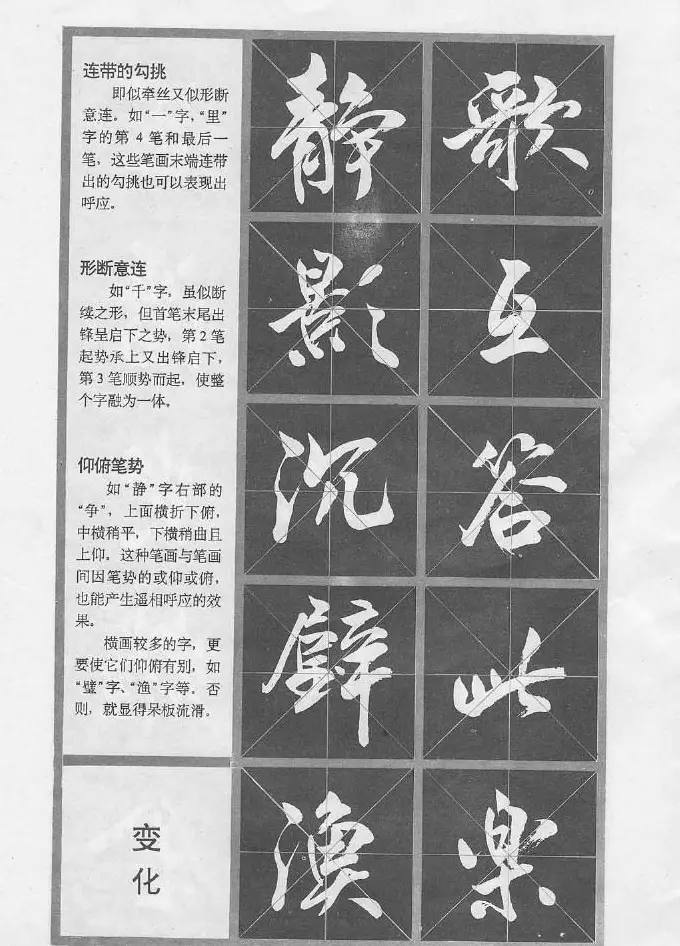 连带的勾挑
即似牵丝又似形断
意连。如“一”字，“里”
字的第 4 笔和最后一
笔，这些笔画末端连带
出的勾挑也可以表现出
呼应。
形断意连
如“千”字，虽似断
续之形，但首笔末尾出
锋呈启下之势，第 2 笔
起势承上又出锋启下，
第 3 笔顺势而起，使整
个字融为一体。
仰俯笔势
如“静”字右部的
“争”，上面横折下俯，
中横稍平，下横稍曲且
上仰。这种笔画与笔画
间因笔势的或仰或俯，
也能产生遥相呼应的效
果。
横画较多的字，更
要使它们仰俯有别，如
“璧”字、“渔”字等。否
则，就显得呆板流滑。
变
化
静
影
沉
璧
漁
歌
互
答
此
樂